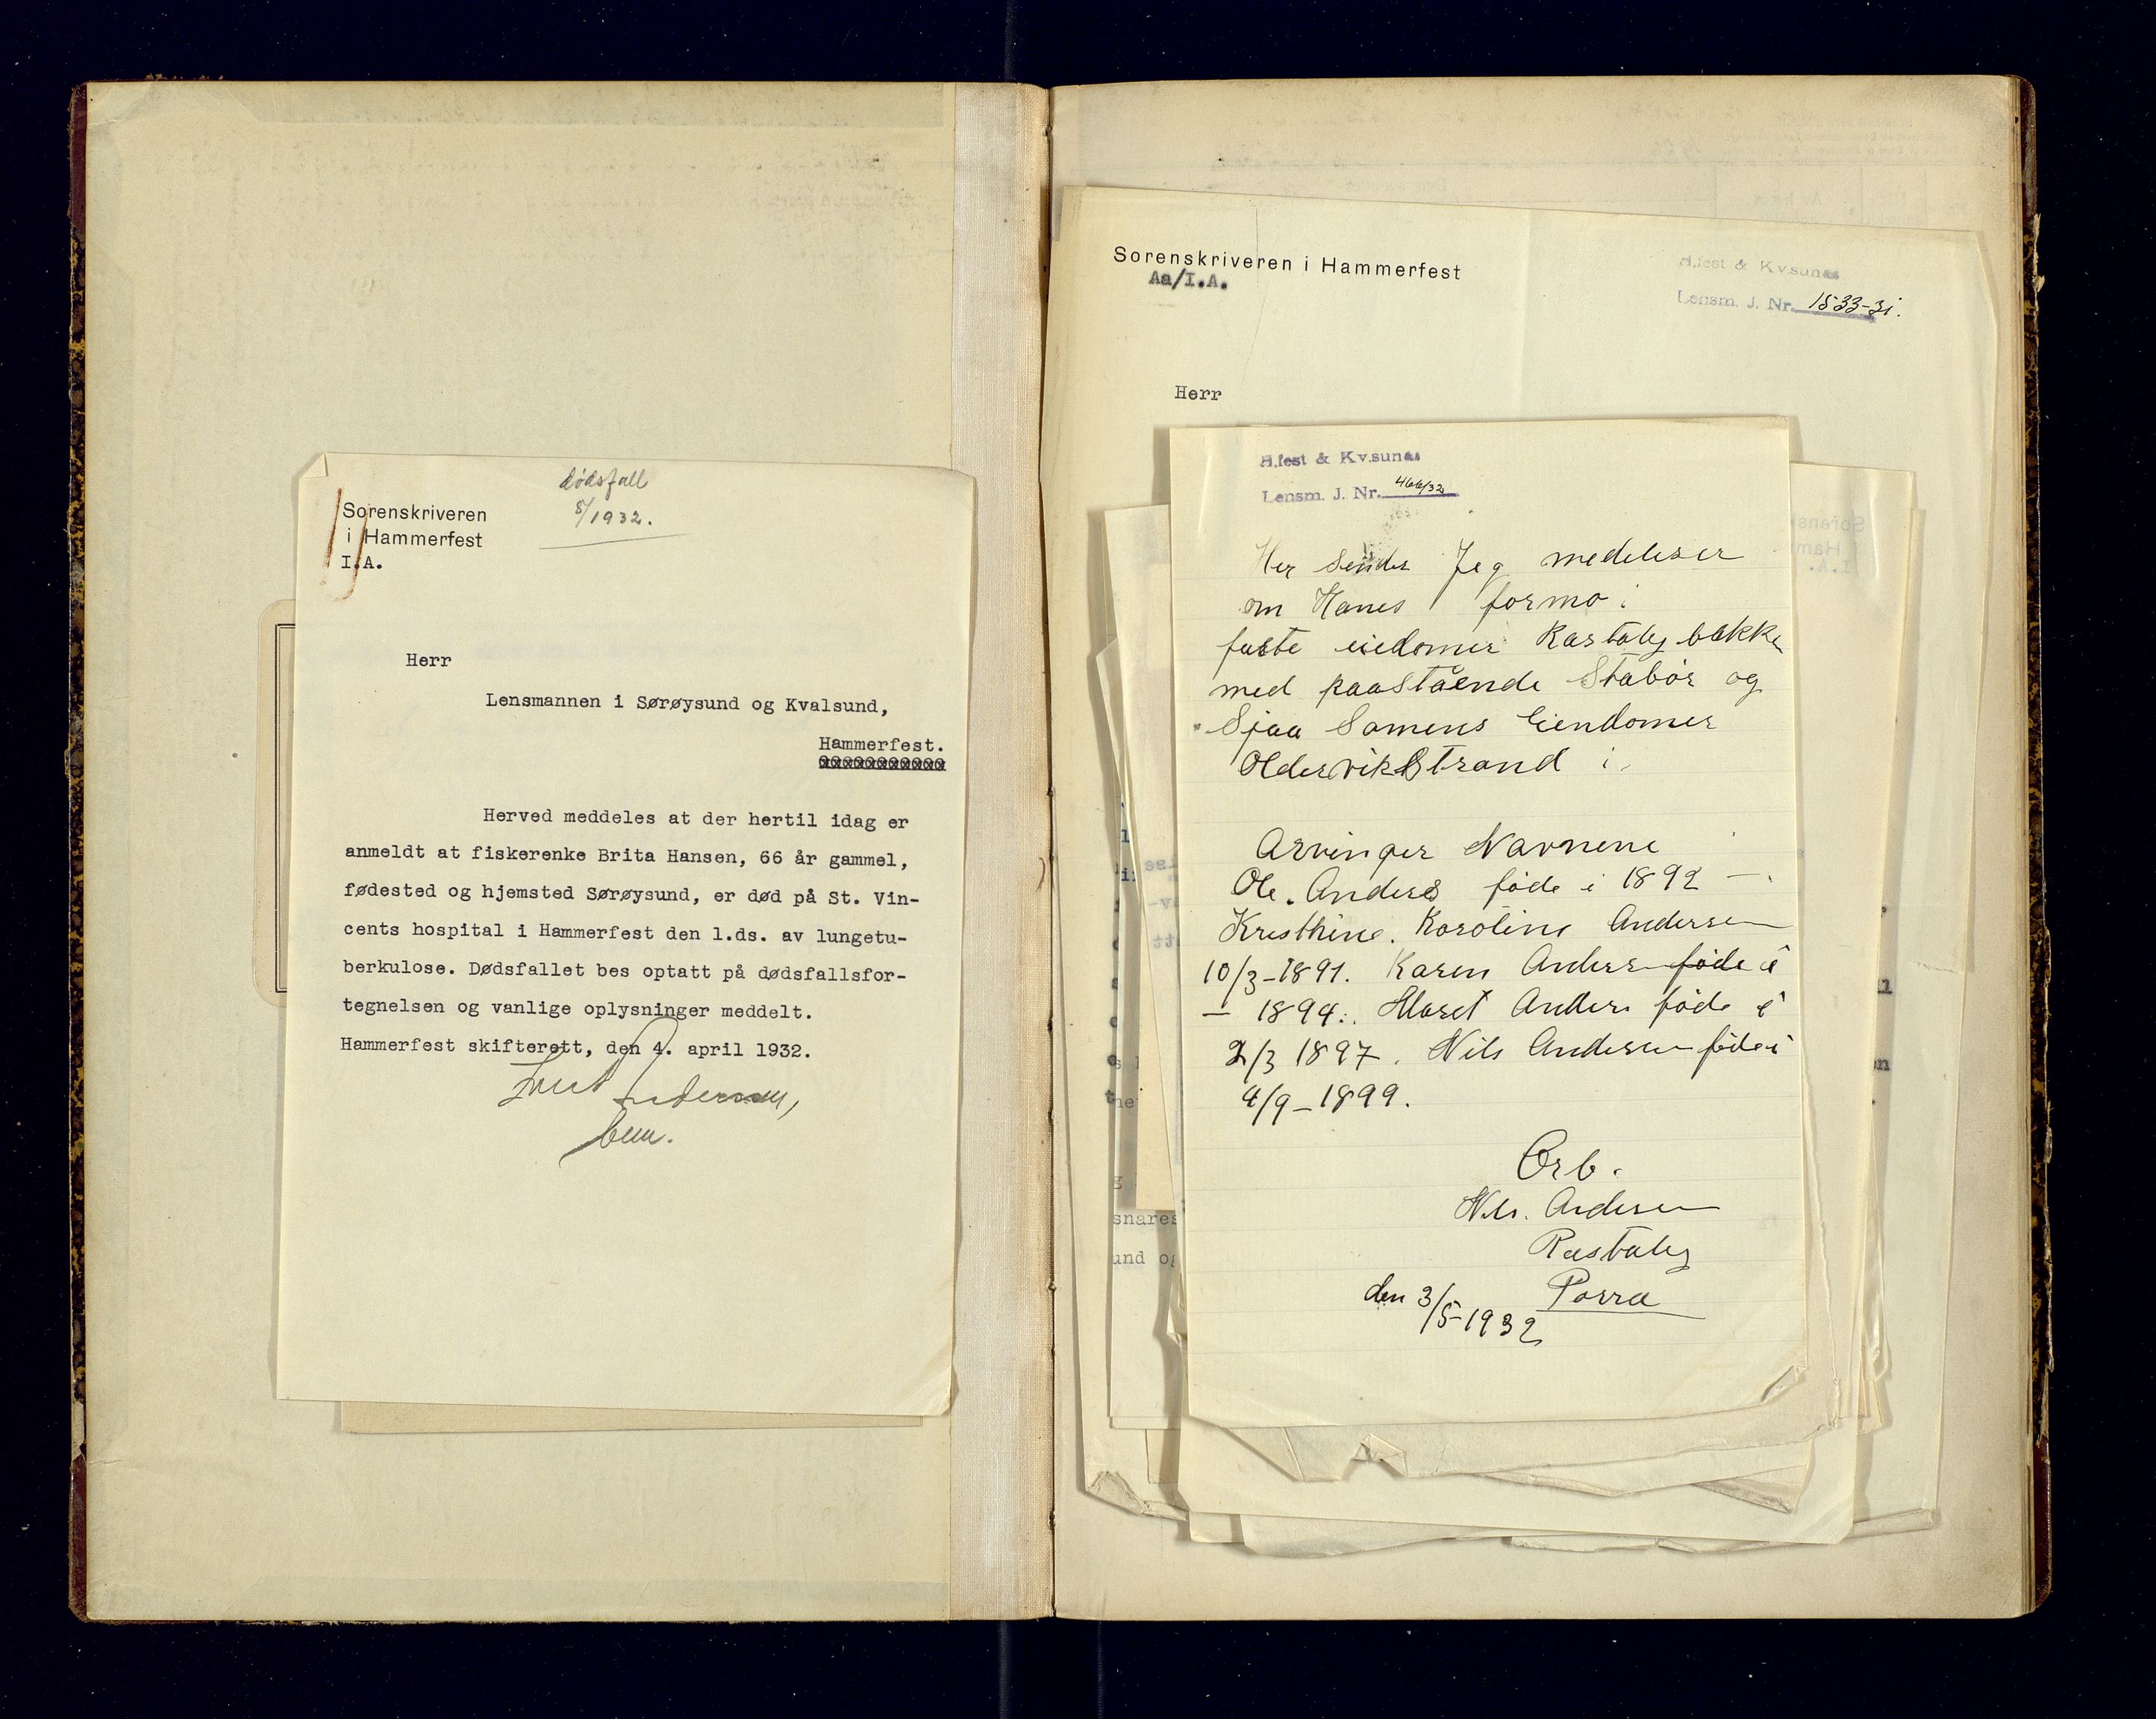 dødsfall
8/1932.
Sorenskriveren
i Hammerfest
I.A.
Herr
Lensmannen i Sørøysund og Kvalsund,
Hammerfest.
Herved meddeles at der hertil idag er
anmeldt at fiskerenke Brita Hansen, 66 år gammel,
fødested og hjemsted Sørøysund, er død på St. Vin-
cents hospital i Hammerfest den 1.ds. av lungetu-
berkulose. Dødsfallet bes optatt på dødsfallsfor-
tegnelsen og vanlige oplysninger meddelt.
Hammerfest skifterett, den 4. april 1932.
Andersen,
Sorenskriveren i Hammerfest
Aa/I.A.
H.fest & Kv.sunds
Lensm. J. Nr. 1533-31.
Herr
H.fest & Kv.sunds
Lensm. J. Nr. 466/32
Her sender Jeg medeleser
om Hanes formo:
faste eiedomer Rastaby bakke
med paastående Stabør og
Sjaa Samens Eiendomer
Oldervikstrand i
Arvinger Navnene
Ole. Anders føde i 1892 —
Kristhine. Karoline Andersen
10/3-1891. Karen Anders føde i
— 1894. Maret Anders føde i
2/3 1897. Nils Andersen føde i
4/9-1899.
Ærb.
Nils. Andersen
Rastaby
Porsa
den 3/5-1932
snares
und og